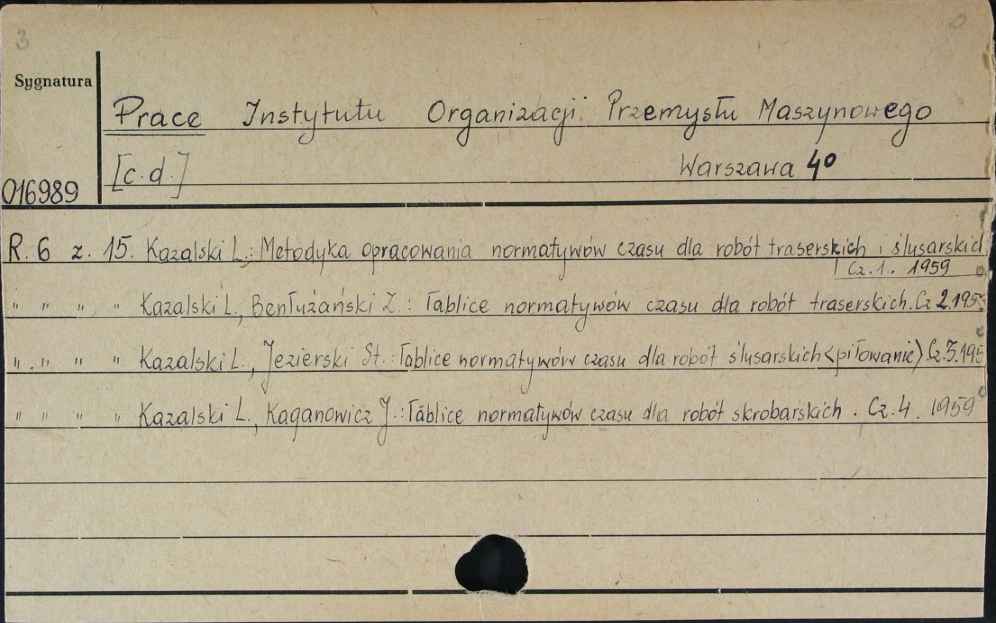 3
Sygnatura
Prace Instytutu Organizacji Przemysłu Maszynowego
[c.d.] Warszawa 40
016989
R. 6 z. 15. Kazalski L.: Metodyka opracowania normatywów czasu dla robót traserskich i ślusarskich
Cz. 1. 1959
" " " " Kazalski L., Benłużański Z.: Tablice normatywów czasu dla robót traserskich. Cz 2. 195
" " " " Kazalski L., Jezierski St.: Tablice normatywów czasu dla robót ślusarskich (piłowanie) Cz. 3. 195
" " " " Kazalski L., Kaganowicz J.: Tablice normatywów czasu dla robót skrobarskich. Cz. 4. 1959